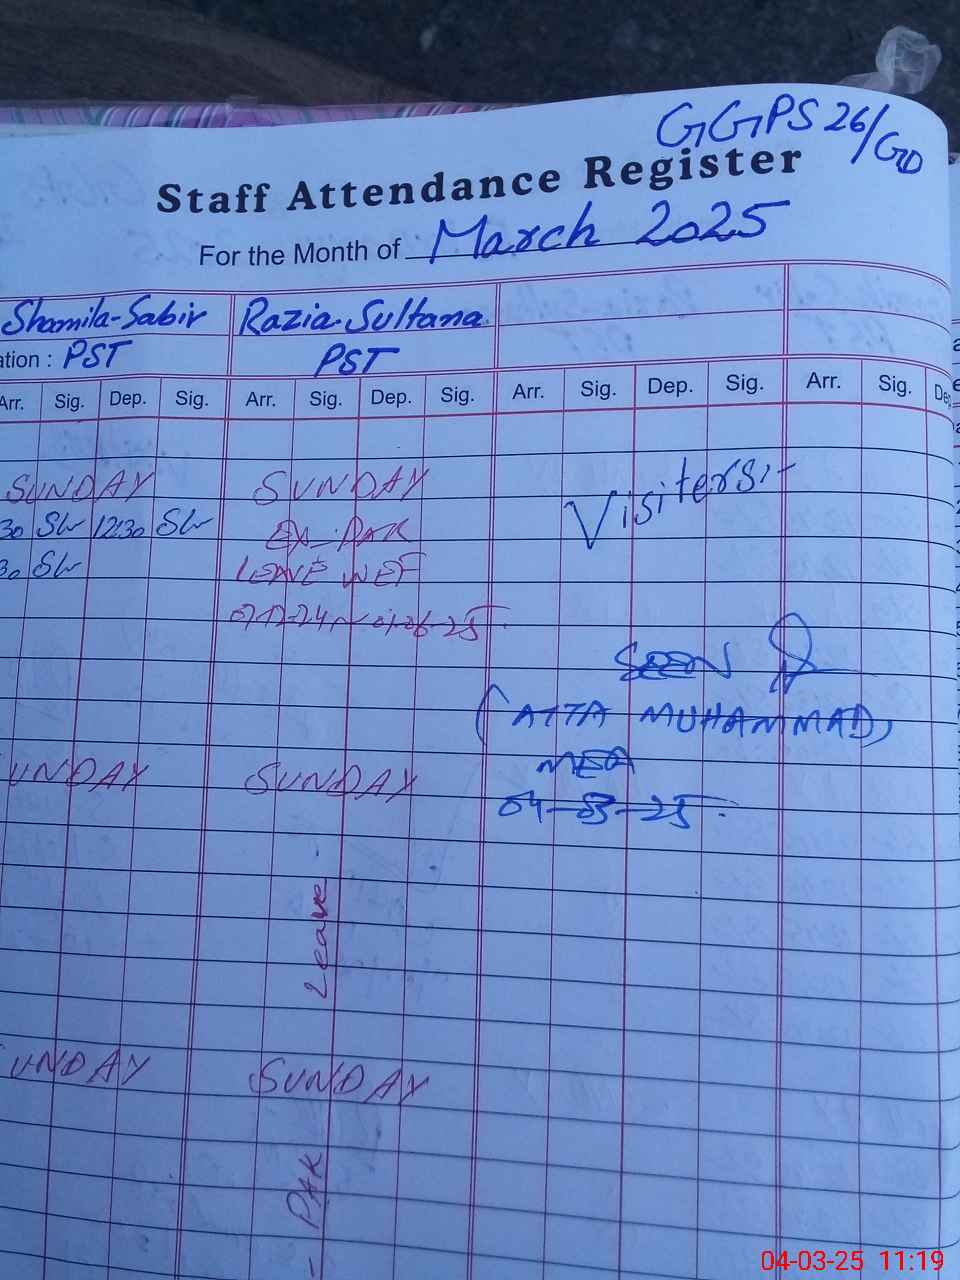 GGPS 26/GD
Staff Attendance Register
For the Month of March 2025
Shamila-Sabir Razia-Sultana
ation : PST PST
Arr. Sig. Dep. Sig. Arr. Sig. Dep. Sig. Arr. Sig. Dep. Sig. Arr. Sig. Dep
SUNDAY SUNDAY Visiters:-
30 12:30 EX-PAK
30 LEAVE WEF
07-12-24 01-06-25
SEEN
(ATTA MUHAMMAD)
UNDAY SUNDAY MEA
04-03-25
Leave
UNDAY SUNDAY
- PAK
04-03-25 11:19